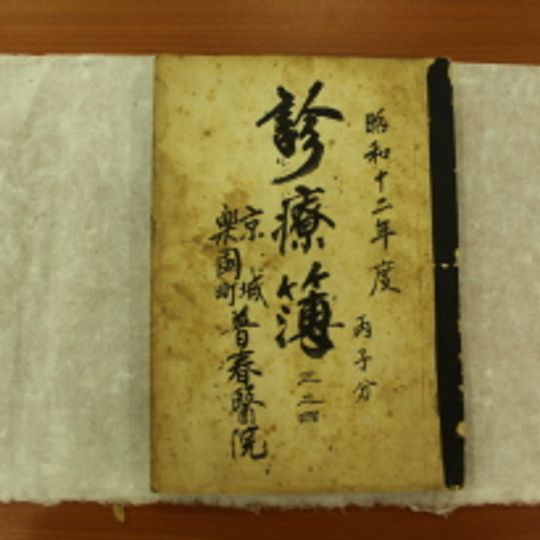 昭和十二年度
丙子分
診療簿
三二四
京城
樂園町
普春醫院